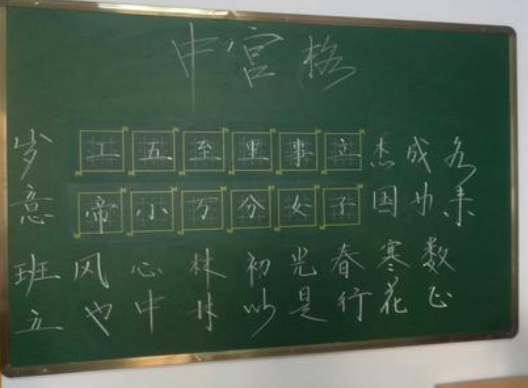 中宫格
岁工五至里事立杰成名
意帝小万分女子国也来
班风心林初光春寒数
立也中林以是行花正